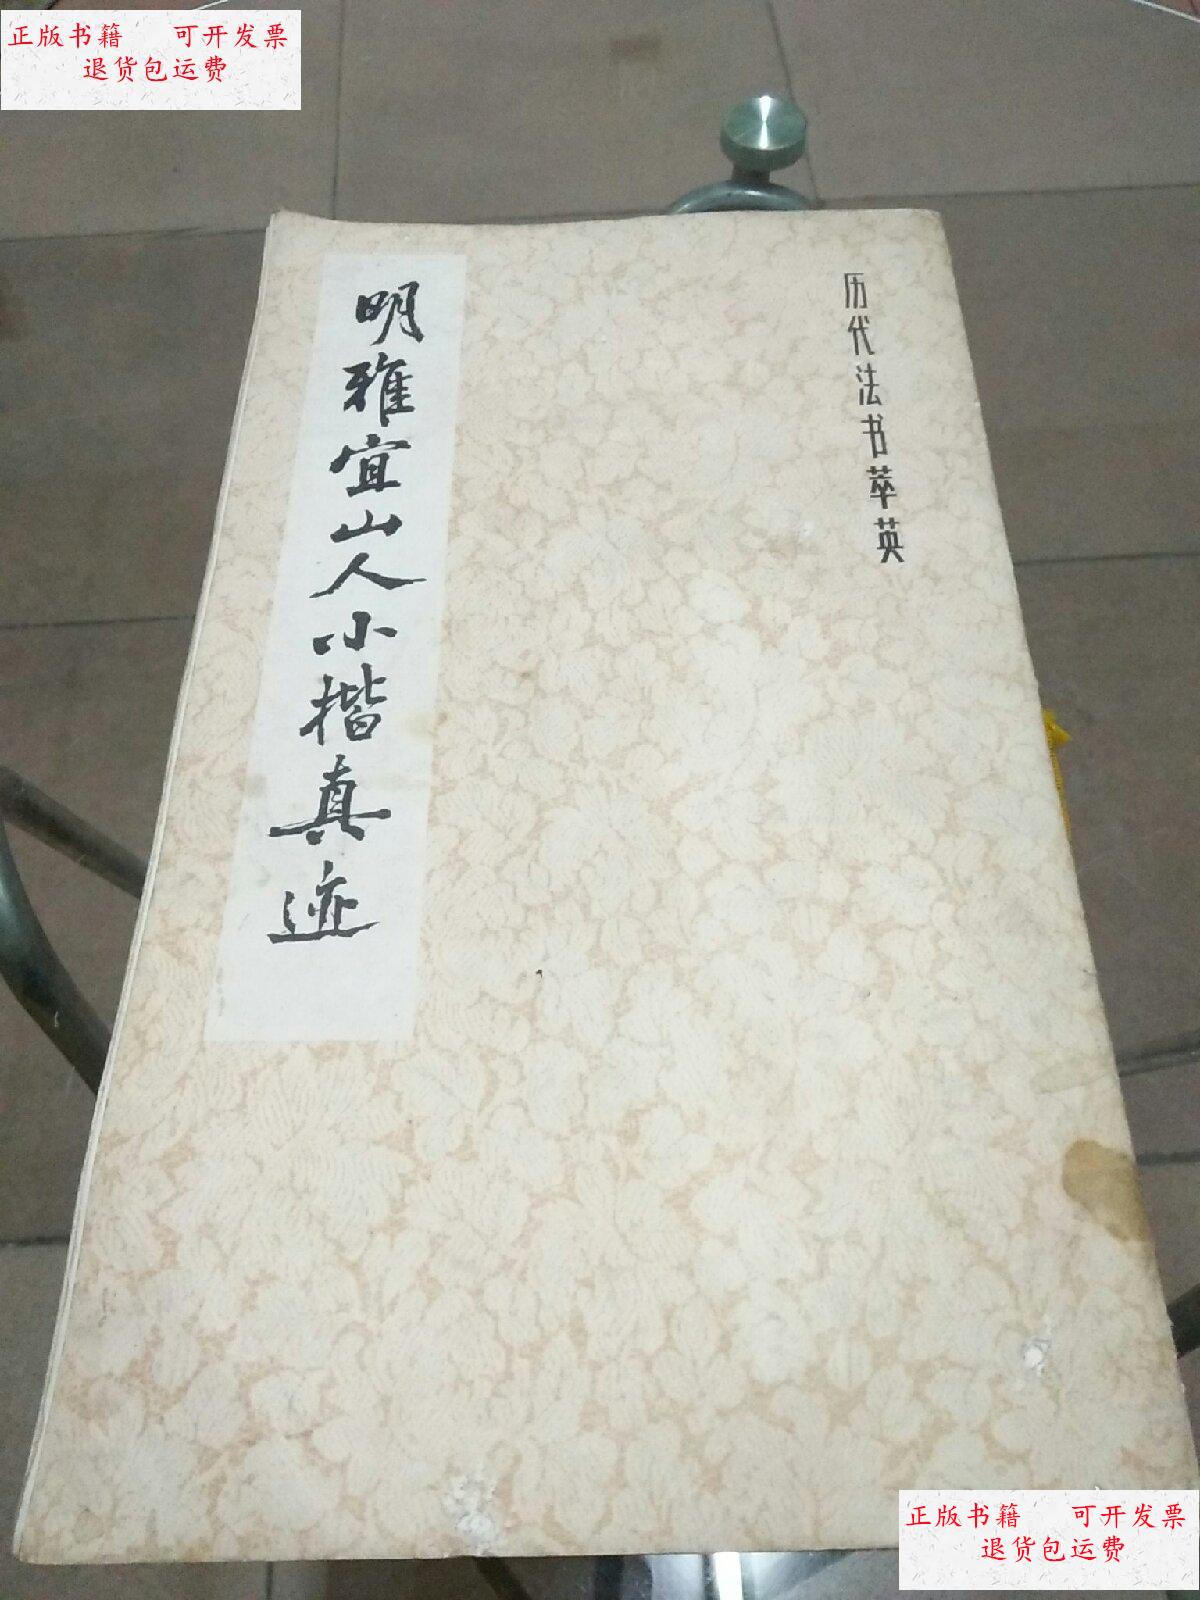 正版书籍 可开发票
退货包运费
历代法书萃英
明雅宜山人小楷真迹
正版书籍 可开发票
退货包运费